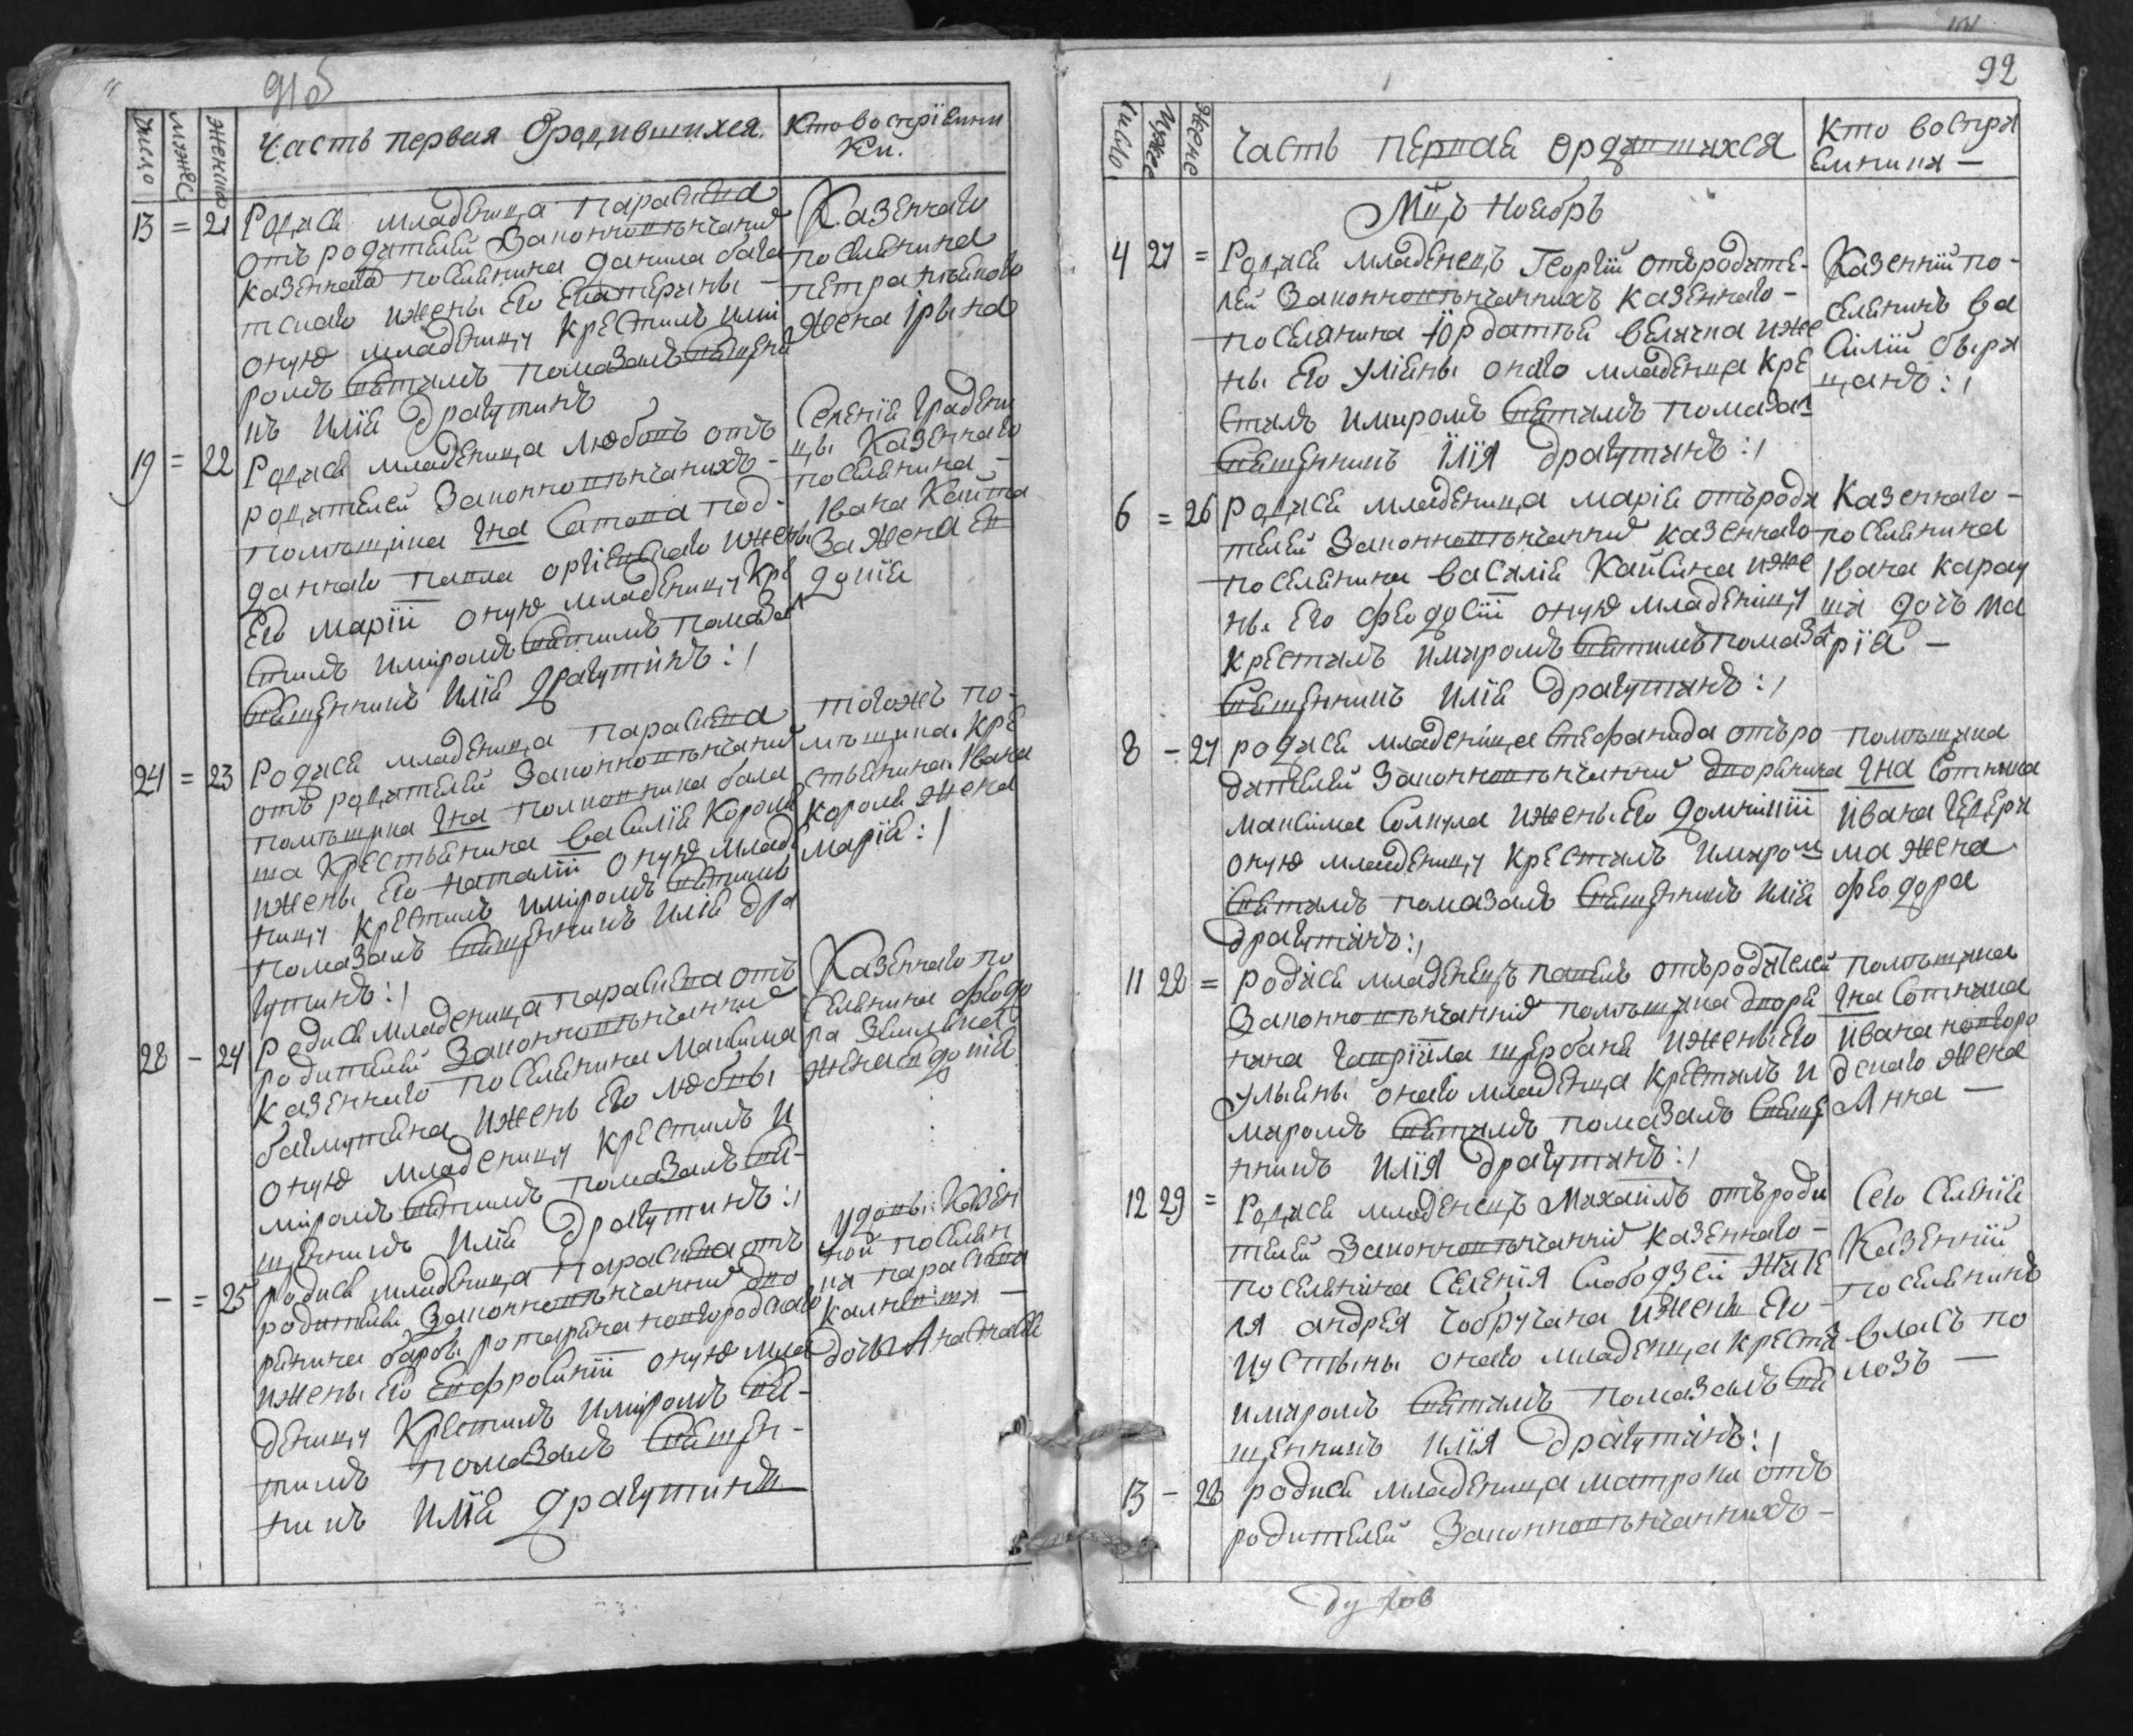 91б
Число
мужес
женско
Часть первая Ородившихся.
Кто воспріемни
ки.
13 = 21 Родися младеница параскева
отъ родителей Законновѣнчаних
казенного поселянина данила бага
тского ижены Его Екатерины
оную младеницу крестилъ имѵ
ромъ святымъ помазалъ священ
нъ Илія Драгутинъ
Казенного
поселянина
петра
жена Ірына
19 = 22 Родися младеница Любовь отъ
родителей Законновѣнчанихъ -
помѣщика Гна Сатова под-
данного павла ижены
Его Маріи оную младеницу кре
стилъ имѵромъ святимъ помазал
Священникъ Илія Драгутинъ :/
Селенія Градени
цы Казенного
поселянина -
Івана Кайта
за жена Ев
докія
24 = 23 Родися младеница параскева
отъ родителей Законновѣнчаних
помѣщика Гна полковника бала
ша Крестьянина Василія Короля
ижены Его Наталіи оную млад
ницу крестилъ имѵромъ святимъ
помазалъ священникъ Илія Дра
гутинъ :/
тогожъ по-
мѣщика кре
стьянина Івана
короля жена
Марія :/
28 - 24 Родися младеница параскева отъ
родителей Законновѣнчанних
казенного поселянина Максима
ижены Его любовы
оную младеницу крестилъ и
мѵромъ святимъ помазалъ свя-
щенникъ Илія Драгутинъ :/
Казенного по
селянина Феодо
ра
жена Евдокія
- = 25 Родися младеница параскева отъ
родителей Законновѣнчанних дво
рянина
ижены Его Евфросиніи оную мла
деницу Крестилъ имѵромъ свя-
тимъ помазалъ священ-
никъ Илія Драгутинъ
удовы казен
ной поселян
ки параскевы
дочь Анастасія
92
Число
Мужес
Женс
Часть первая ородившихся
Кто воспри
емники —
Мцъ Ноябръ
4 27 = Родися младенецъ Георгій отъродите-
лей Законновѣнчаннихъ казенного -
поселянина велична иже
ны Его Уліяны оного младенца Кре
стилъ имиромъ святимъ помазал
Священникъ Илія Драгутинъ :/
Казенній по-
селянинъ Ва
силій бырл
цанъ :/
6 = 26 Родися младеница марія отъроди
телей Законновѣнчанних казенного
поселянина Василія Кайсина иже
ны Его Феодосіи оную младеницу
крестилъ имиромъ святимъ помазал
Священникъ Илія Драгутинъ :/
Казенного -
поселянина
Івана карау
ша дочъ Ма
рія —
8 - 27 родися младеница Стефанида отъро
дителей Законновѣнчанних дворянина
Максима Солкула ижены Его Домникіи
оную младеницу крестилъ имиром
святимъ помазалъ священникъ Илія
Драгутинъ :/
помѣщика
Гна Сотника
Ивана Чечери
ма жена
Феодора
11 28 = родися младенецъ павелъ отъродителей
Законновѣнчанних помѣщика дворя
нина Гавріила щербана ижены Его
Ульяны оного младенца крестилъ и
миромъ святимъ помазалъ свяще
нникъ Илія Драгутинъ :/
помѣщика
Гна Сотника
Ивана новгоро
дского жена
Анна —
12 29 = Родися младенецъ Михаилъ отъроди
телей Законновѣнчанних казенного -
поселянина селенія Слободзей жите
ля андрея Чобручана ижены Его -
иустыны оного младенца крести
имиромъ святимъ помазалъ свя
щенникъ Илія Драгутинъ :/
Сего селенія
Казенній
поселянинъ
власъ по
лозъ —
13 - 28 родися младеница матрона отъ
родителей Законновѣнчаннихъ -